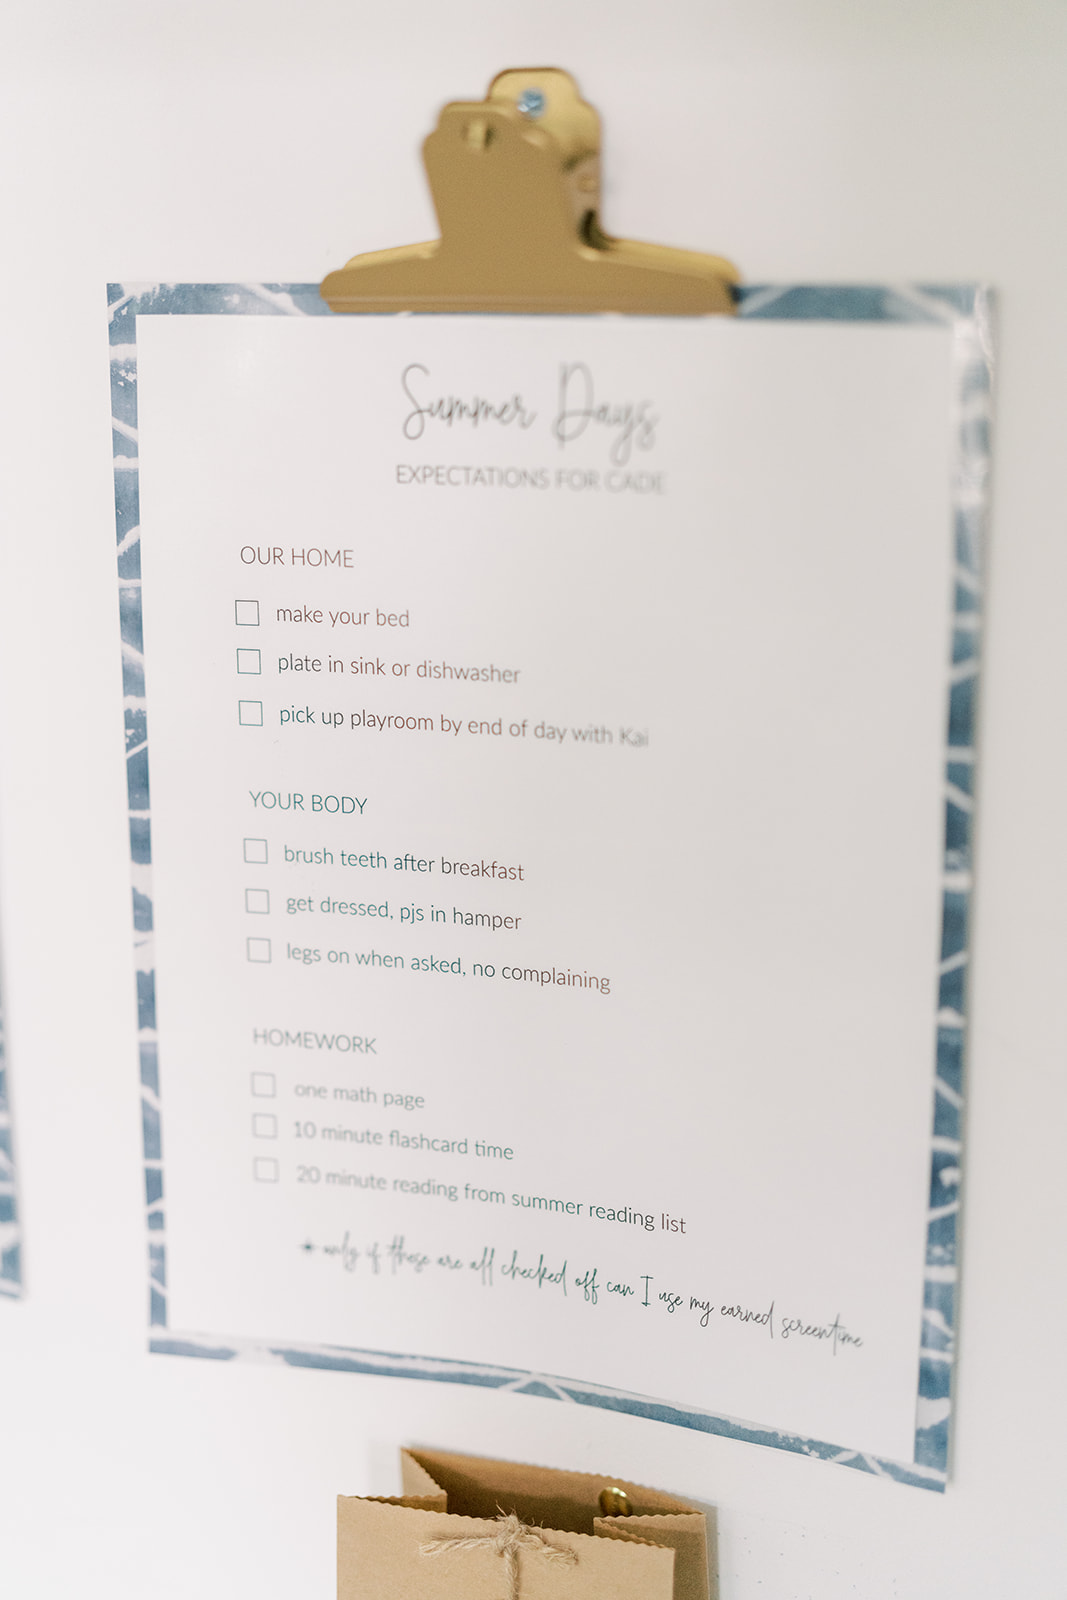 Summer Days
EXPECTATIONS FOR CADE
OUR HOME
make your bed
plate in sink or dishwasher
pick up playroom by end of day with Kai
YOUR BODY
brush teeth after breakfast
get dressed, pjs in hamper
legs on when asked, no complaining
HOMEWORK
one math page
10 minute flashcard time
20 minute reading from summer reading list
* only if these are all checked off can I use my earned screentime